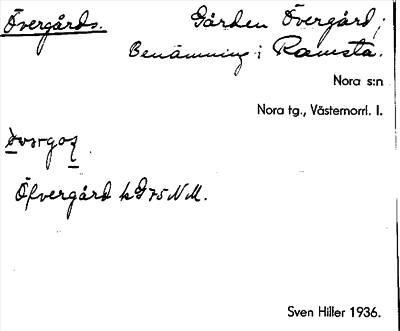 Övergårds. Gården Övergård;
Benämning i Ramsta.
Nora s:n
Nora tg., Västernorrl. l.
Öfvergård hG 75 NM.
Sven Hiller 1936.